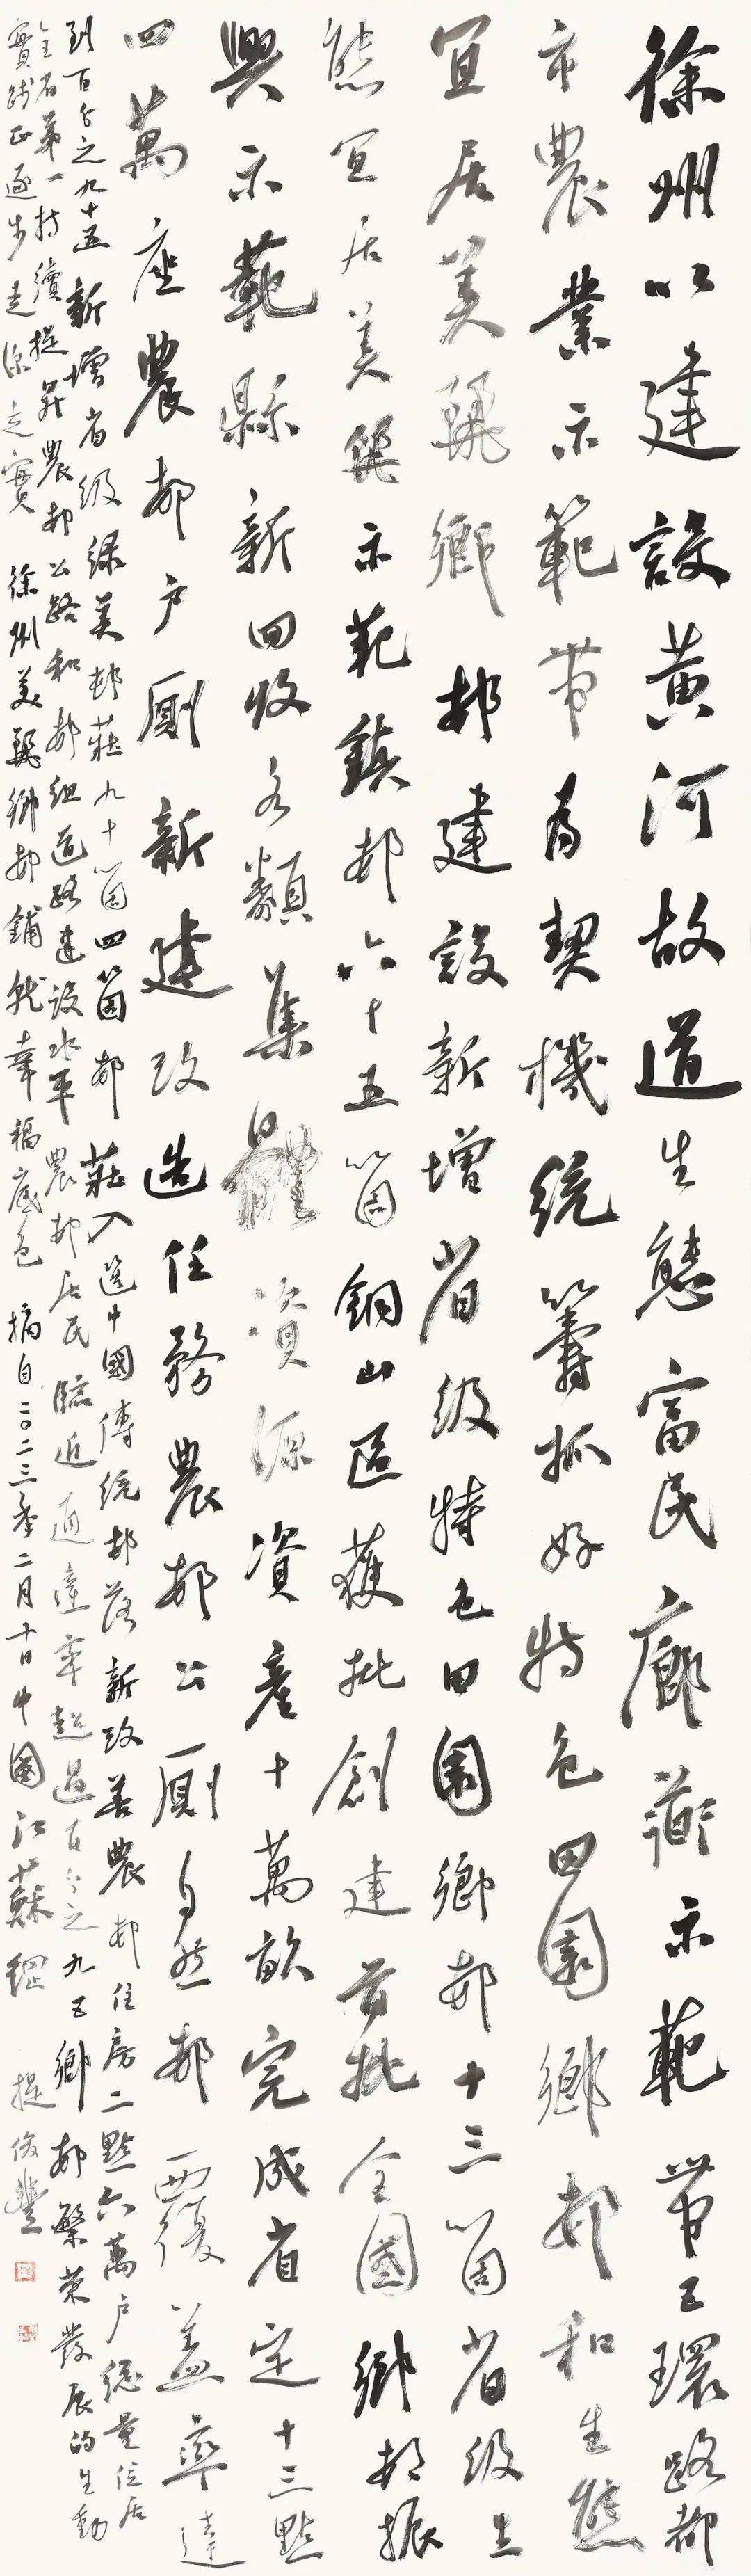 徐州以建設黃河故道生態富民廊衜示範帶五環路都
市農業示範帶為契機統籌抓好特色田園鄉邨和生態
宜居美麗鄉邨建設新增省級特色田園鄉邨十三箇省級生
態宜居美麗示範鎮邨六十五箇銅山區獲批創建首批全國鄉邨振
興示範縣新回收各類集體資源資產十萬畝完成省定十三點
四萬座農邨户厠新建改造任務農邨公厠自然邨覆蓋率達
到百分之九十五新增省級绿美邨莊九十箇四箇邨莊入選中國傳統邨落新改善農邨住房二點六萬户總量位居
全省第一持續提昇農邨公路和邨组道路建设水平農邨居民臨近通達率超過百分之九五鄉邨繁荣發展的生動
實踐正逐步走深走實 徐州美麗鄉邨鋪就幸福底色 摘自二〇二三年二月十日中國江蘇網 提俊豐